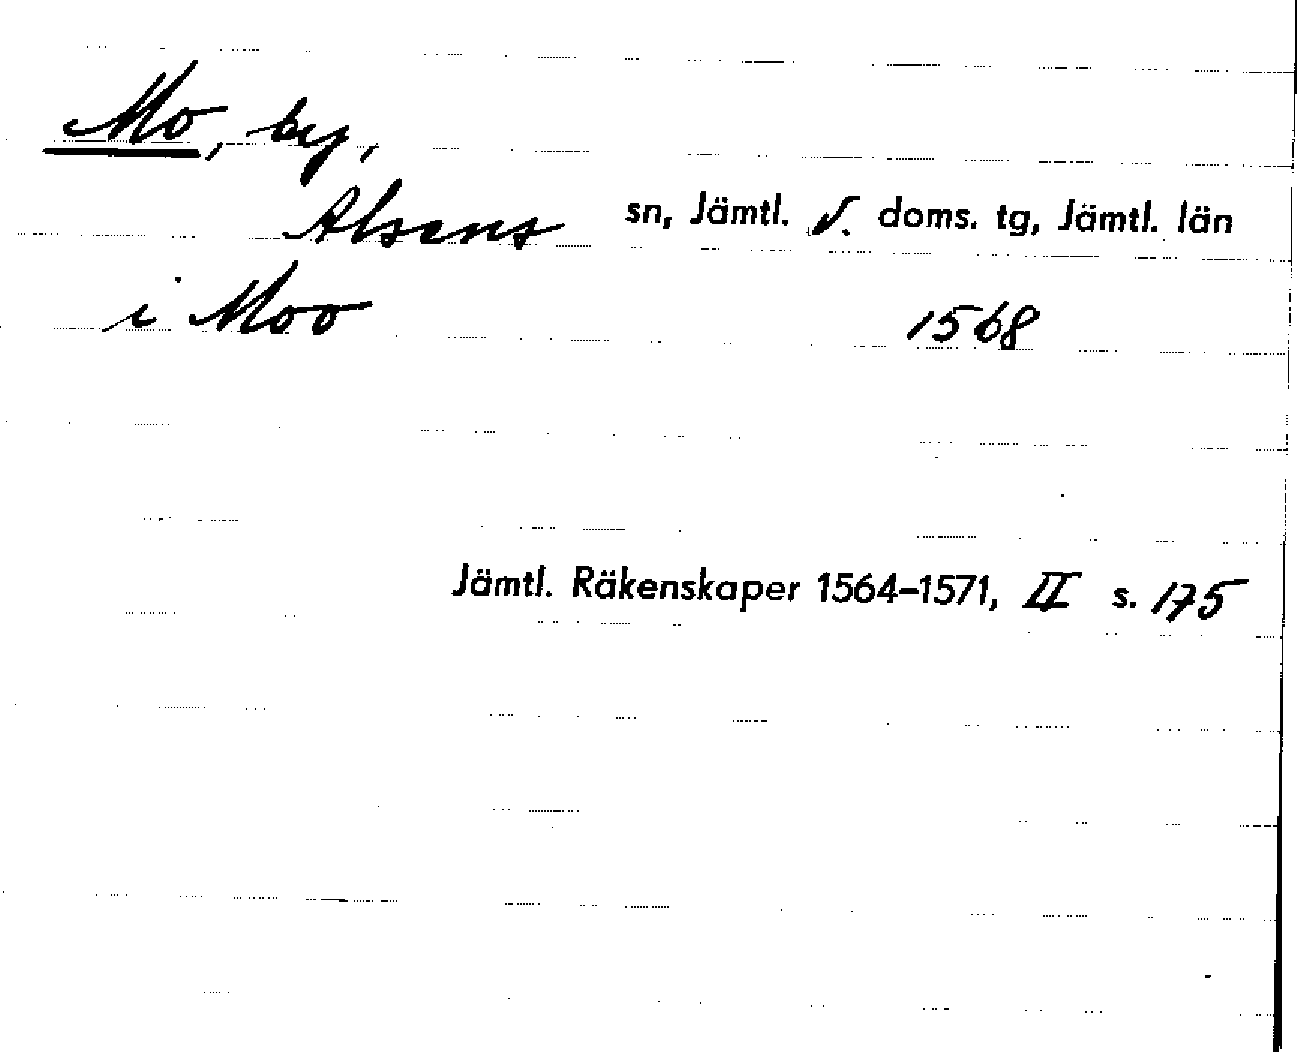 Mo, by,
Alsens sn, Jämtl. v. doms. tg, Jämtl. län
i Moo 1568
Jämtl. Räkenskaper 1564–1571, II s. 175